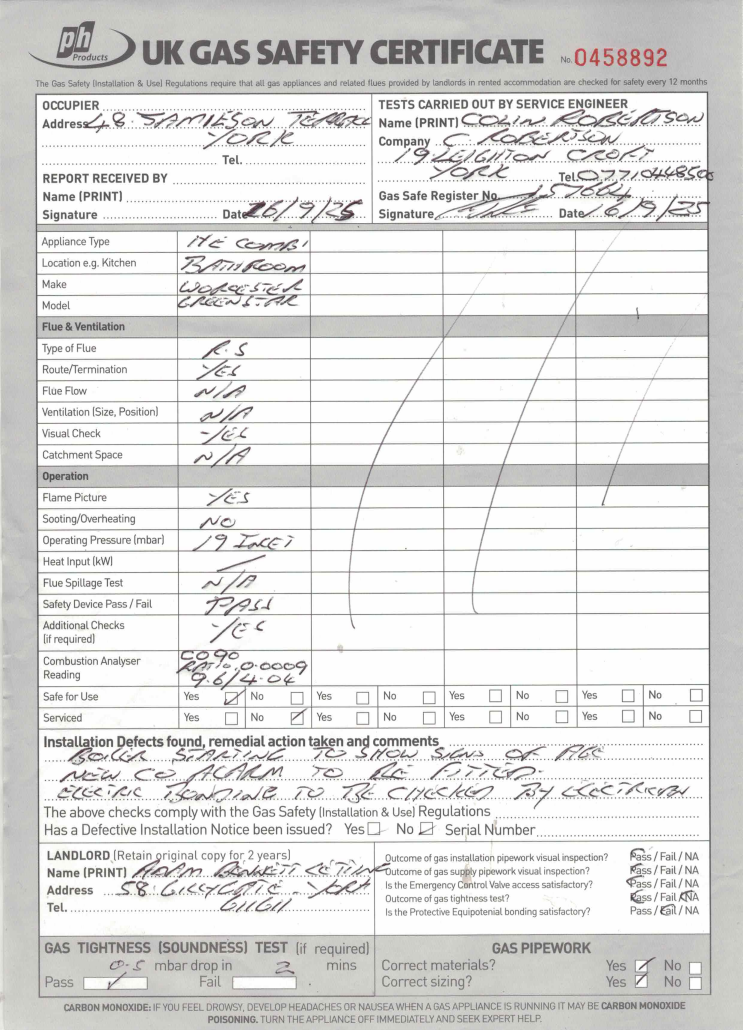 ph Products UK GAS SAFETY CERTIFICATE No. 0458892
The Gas Safety (Installation & Use) Regulations require that all gas appliances and related flues provided by landlords in rented accommodation are checked for safety every 12 months
OCCUPIER
Address 48. JAMIESON TERRACE
YORK
Tel.
REPORT RECEIVED BY
Name (PRINT)
Signature Date 26/9/25
TESTS CARRIED OUT BY SERVICE ENGINEER
Name (PRINT) COLIN ROBERTSON
Company C ROBERTSON
19 LEIGHTON CROFT
YORK Tel. 07710448506
Gas Safe Register No. 157664
Signature Date 26/9/25
Appliance Type HE COMBI
Location e.g. Kitchen BATHROOM
Make WORCESTER
Model GREENSTAR
Flue & Ventilation
Type of Flue R.S
Route/Termination YES
Flue Flow N/A
Ventilation (Size, Position) N/A
Visual Check YES
Catchment Space N/A
Operation
Flame Picture YES
Sooting/Overheating NO
Operating Pressure (mbar) 19 INLET
Heat Input (kW)
Flue Spillage Test N/A
Safety Device Pass / Fail PASS
Additional Checks YES
(if required)
Combustion Analyser CO 90
Reading RATIO, 0.0009
9.6/4.04
Safe for Use Yes No Yes No Yes No Yes No
Serviced Yes No Yes No Yes No Yes No
Installation Defects found, remedial action taken and comments
BOILER STARTING TO SHOW SIGNS OF AGE
NEW CO ALARM TO BE FITTED.
ELECTRIC BONDING TO BE CHECKED BY ELECTRICIAN
The above checks comply with the Gas Safety (Installation & Use) Regulations
Has a Defective Installation Notice been issued? Yes No Serial Number
LANDLORD (Retain original copy for 2 years)
Name (PRINT) ADAM BENNETT LETTING
Address 58. GILLYGATE YORK
Tel. 611611
Outcome of gas installation pipework visual inspection? Pass / Fail / NA
Outcome of gas supply pipework visual inspection? Pass / Fail / NA
Is the Emergency Control Valve access satisfactory? Pass / Fail / NA
Outcome of gas tightness test? Pass / Fail / NA
Is the Protective Equipotenial bonding satisfactory? Pass / Fail / NA
GAS TIGHTNESS (SOUNDNESS) TEST (if required)
0.5 mbar drop in 2 mins
Pass Fail
GAS PIPEWORK
Correct materials? Yes No
Correct sizing? Yes No
CARBON MONOXIDE: IF YOU FEEL DROWSY, DEVELOP HEADACHES OR NAUSEA WHEN A GAS APPLIANCE IS RUNNING IT MAY BE CARBON MONOXIDE
POISONING. TURN THE APPLIANCE OFF IMMEDIATELY AND SEEK EXPERT HELP.